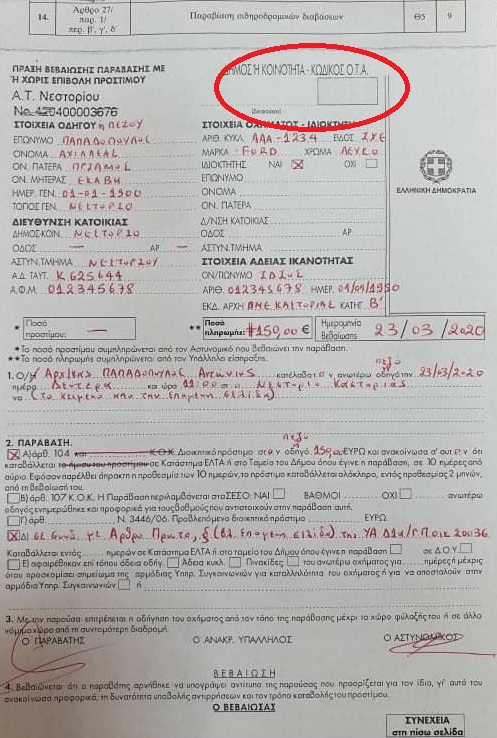 14.
Άρθρο 27/
παρ. 1/
περ. β΄, γ΄, δ΄
Παραβίαση σιδηροδρομικών διαβάσεων
Θ5
9
ΠΡΑΞΗ ΒΕΒΑΙΩΣΗΣ ΠΑΡΑΒΑΣΗΣ ΜΕ
Ή ΧΩΡΙΣ ΕΠΙΒΟΛΗ ΠΡΟΣΤΙΜΟΥ
Α.Τ. Νεστορίου
No 420400003676
ΔΗΜΟΣ Ή ΚΟΙΝΟΤΗΤΑ - ΚΩΔΙΚΟΣ Ο.Τ.Α.
(Δικαιούχου)
ΣΤΟΙΧΕΙΑ ΟΔΗΓΟΥ ή ΠΕΖΟΥ
ΕΠΩΝΥΜΟ ΠΑΠΑΔΟΠΟΥΛΟΣ
ΟΝΟΜΑ ΑΧΙΛΛΕΑΣ
ΟΝ. ΠΑΤΡΟΣ ΠΡΙΑΜΟΣ
ΟΝ. ΜΗΤΡΑΣ ΕΚΑΒΗ
ΗΜΕΡ. ΓΕΝ. 01-01-1900
ΤΟΠΟΣ ΓΕΝ. ΝΕΣΤΟΡΙΟ
ΔΙΕΥΘΥΝΣΗ ΚΑΤΟΙΚΙΑΣ
ΔΗΜΟΣ-ΚΟΙΝ. ΝΕΣΤΟΡΙΟ
ΟΔΟΣ — ΑΡ —
ΑΣΤΥΝ.ΤΜΗΜΑ ΝΕΣΤΟΡΙΟΥ
Α.Δ. ΤΑΥΤ. Κ 625644
Α.Φ.Μ. 012345678
ΣΤΟΙΧΕΙΑ ΟΧΗΜΑΤΟΣ - ΙΔΙΟΚΤΗΤΗ
ΑΡΙΘ. ΚΥΚΛ. ΑΑΑ-1234 ΕΙΔΟΣ ΙΧΕ
ΜΑΡΚΑ FORD ΧΡΩΜΑ ΛΕΥΚΟ
ΙΔΙΟΚΤΗΤΗΣ ΝΑΙ ☒ ΟΧΙ ☐
ΕΠΩΝΥΜΟ
ΟΝΟΜΑ
ΟΝ. ΠΑΤΕΡΑ
Δ/ΝΣΗ ΚΑΤΟΙΚΙΑΣ
ΟΔΟΣ ΑΡ.
ΑΣΤΥΝ.ΤΜΗΜΑ
ΣΤΟΙΧΕΙΑ ΑΔΕΙΑΣ ΙΚΑΝΟΤΗΤΑΣ
ΟΝ/ΠΩΝΥΜΟ ΙΔΙΟΣ
ΑΡΙΘ. 012345678 ΗΜΕΡ. 01/01/1950
ΕΚΔ. ΑΡΧΗ ΠΝΕ ΚΑΣΤΟΡΙΑΣ ΚΑΤΗΓ. Β΄
ΕΛΛΗΝΙΚΗ ΔΗΜΟΚΡΑΤΙΑ
* Ποσό προστίμου: —
** Ποσό πληρωμής: #150,00 €
Ημερομηνία Βεβαίωσης 23/03/2020
*Το ποσό προστίμου συμπληρώνεται από τον Αστυνομικό που βεβαίωνει την παράβαση.
**Το ποσό πληρωμής συμπληρώνεται από τον Υπάλληλο είσπραξης.
πεζό
1. Ο/Η Αρχ/κας ΠΑΠΑΔΟΠΟΥΛΟΣ Αντώνιος κατέλαβα τον ανωτέρω οδηγό την 23/03/2020
ημέρα Δευτέρα και ώρα 11:00 στο Νεστόριο Καστοριάς
να (το κείμενο στην επόμενη σελίδα)
2. ΠΑΡΑΒΑΣΗ.
πεζό
☒ Α)άρθ. 104 και Κ.Ο.Κ. Διοικητικό πρόστιμο στον οδηγό 150,00 ΕΥΡΩ και ανακοίνωσα σ' αυτόν ότι
καταβάλλεται το ήμισυ του προστίμου σε Κατάστημα ΕΛΤΑ ή στο Ταμείο του Δήμου όπου έγινε η παράβαση, σε 10 ημέρες από
αύριο. Εφόσον παρέλθει άπρακτη η προθεσμία των 10 ημερών, το πρόστιμο καταβάλλεται ολόκληρο, εντός προθεσμίας 2 μηνών,
από τη βεβαίωση.
☐ Β) άρθ. 107 Κ.Ο.Κ. Η Παράβαση περιλαμβάνεται στο ΣΕΣΟ: ΝΑΙ ☐ ΒΑΘΜΟΙ ΟΧΙ ☐ ανωτέρω
οδηγός ενημερώθηκε και προφορικά για τους βαθμούς που αντιστοιχούν στην παράβαση αυτή.
☐ Γ) άρθ. Ν. 3446/06. Προβλεπόμενο διοικητικό πρόστιμο ΕΥΡΩ.
☒ Δ) σε συνδ. με Άρθρο Πρώτο, § (βλ. επόμενη σελίδα) της ΥΑ Δ1α/Γ.Π.οικ 20036
Καταβάλλεται εντός ημερών σε Κατάστημα ΕΛΤΑ ή στο ταμείο του Δήμου όπου έγινε η παράβαση ☐ σε Δ.Ο.Υ. ☐
☐ Ε) αφαιρέθηκαν επί τόπου άδεια οδήγ. ☐ Άδεια κυκλ. ☐ Πινακίδες ☐ του ανωτέρω οχήματος για ημέρες μέχρις
ότου προσκομίσει σημείωμα της αρμόδιας Υπηρ. Συγκοινωνιών για καταλληλότητα του οχήματος ή για να αποσταλούν στην
αρμόδια Υπηρ. Συγκοινωνιών ☐ ή
3. Με την παρούσα επιτρέπεται η οδήγηση του οχήματος από τον τόπο της παράβασης μέχρι το χώρο φύλαξής του ή σε άλλο
νόμιμο χώρο από τη συντομότερη διαδρομή.
Ο ΠΑΡΑΒΑΤΗΣ
Ο ΑΝΑΚΡ. ΥΠΑΛΛΗΛΟΣ
Ο ΑΣΤΥΝΟΜΙΚΟΣ
ΒΕΒΑΙΩΣΗ
4. Βεβαιώνεται ότι ο παραβάτης αρνήθηκε να υπογράψει αντίτυπο της παρούσας που προορίζεται για τον ίδιο, γι' αυτό του
ανακοίνωσα προφορικά, τη δυνατότητα υποβολής αντιρρήσεων και τον τρόπο καταβολής του προστίμου.
Ο ΒΕΒΑΙΩΣΑΣ
ΣΥΝΕΧΕΙΑ
στη πίσω σελίδα